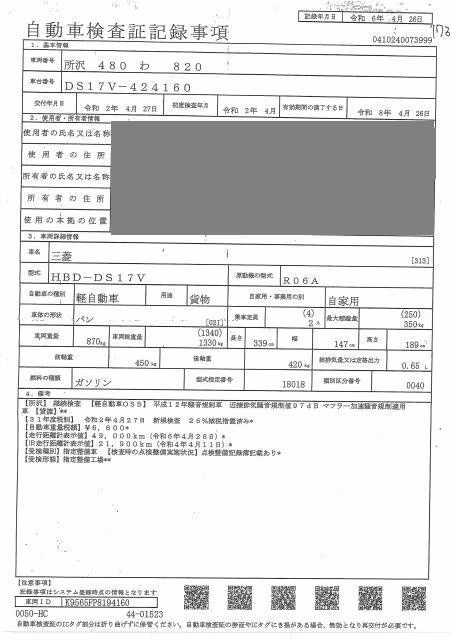 記録年月日 令和 6年 4月 26日
自動車検査証記録事項
0410240073999
1. 基本情報
車両番号 所沢 480 わ 820
車台番号 DS17V-424160
交付年月日 令和 2年 4月 27日 初度検査年月 令和 2年 4月 有効期間の満了する日 令和 8年 4月 26日
2. 使用者・所有者情報
使用者の氏名又は名称
使用者の住所
所有者の氏名又は名称
所有者の住所
使用の本拠の位置
3. 車両詳細情報
車名 三菱 [313]
型式 HBD-DS17V 原動機の型式 R06A
自動車の種別 軽自動車 用途 貨物 自家用・事業用の別 自家用
車体の形状 バン [021] 乗車定員 (4) 2人 最大積載量 (250) 350kg
車両重量 870kg 車両総重量 (1340) 1330kg 長さ 339cm 幅 147cm 高さ 189cm
前軸重 450kg 後軸重 420kg 総排気量又は定格出力 0.65 L
燃料の種類 ガソリン 型式指定番号 18018 類別区分番号 0040
4. 備考
【所沢】 継続検査 【軽自動車OSS】 平成12年騒音規制車 近接排気騒音規制値97dB マフラー加速騒音規制適用
車 【貸渡】**
【31年度税制】 令和2年4月27日 新規検査 25%減税措置済み*
【自動車重量税額】¥6,600*
【走行距離計表示値】49,000km(令和6年4月26日)*
【旧走行距離計表示値】21,900km(令和4年4月11日)*
【受検種別】指定整備車 【検査時の点検整備実施状況】点検整備記録簿記載あり*
【受検形態】指定整備工場**
【注意事項】
記録事項はシステム登録時点の情報となります
車両ID K9565PP8194160
0050-HC 44-01523
自動車検査証のICタグ部分は折り曲げずに保管ください。自動車検査証の券面やICタグにき損がある場合、無効となり再交付が必要です。